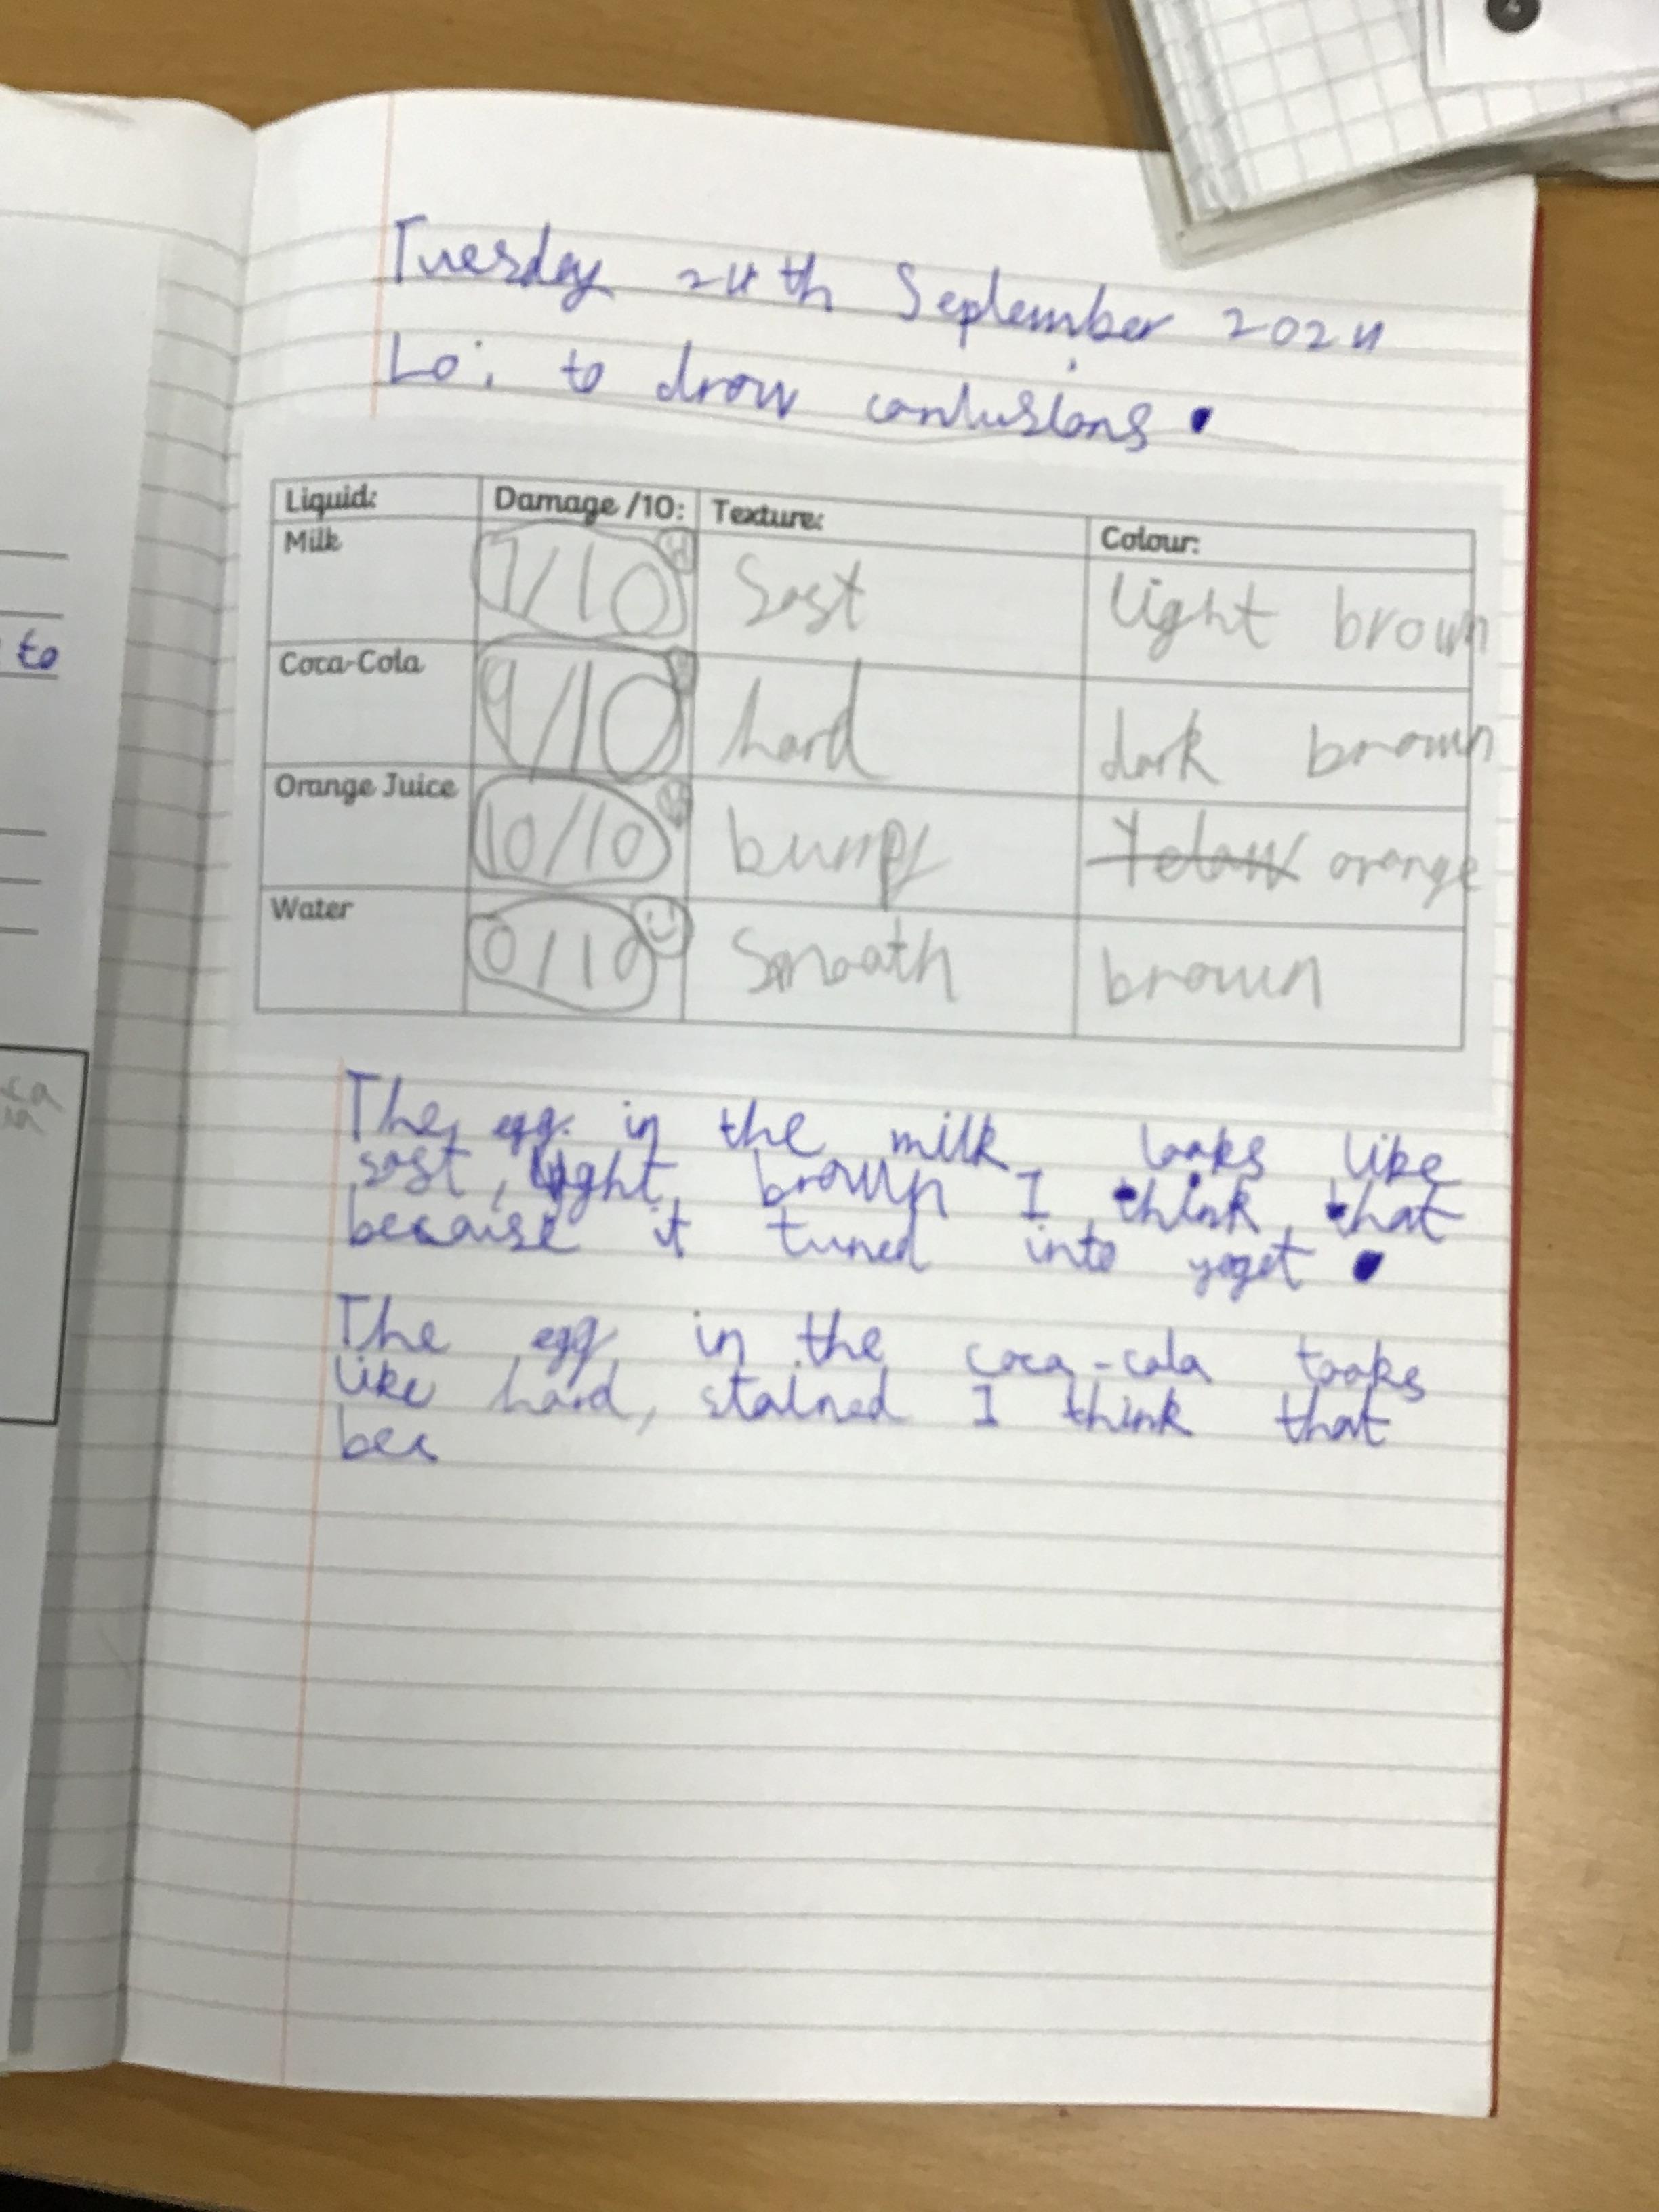 Tuesday 24th September 2024
Lo: to drow conlusions.
Liquid: Damage /10: Texture: Colour:
Milk 7/10 Sost light brown
Coca-Cola 9/10 hard dark brown
Orange Juice 10/10 bumpy Yelaw orange
Water 0/10 Smooth brown
The egg in the milk looks like
sost, light, brown I think that
because it tuned into yoget.
The egg in the coca-cola tooks
like hard, stained I think that
bec
to